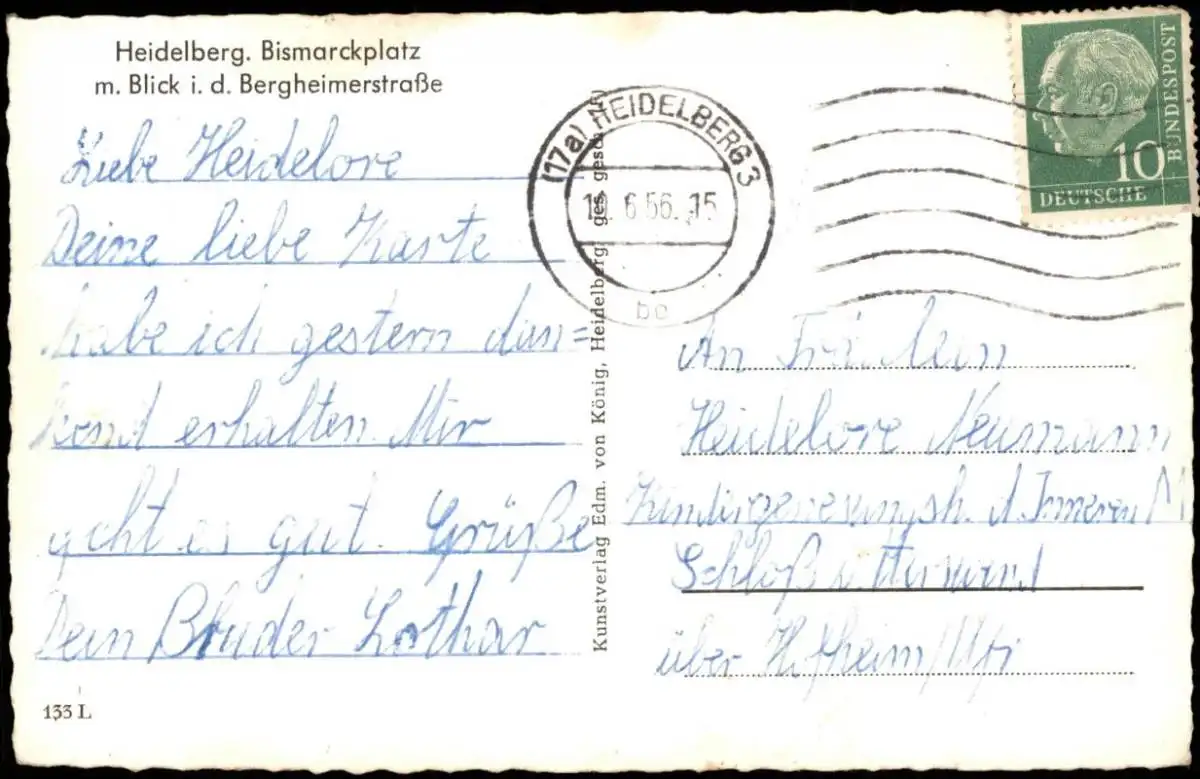 Heidelberg. Bismarckplatz
m. Blick i. d. Bergheimerstraße
Liebe Heidelore
Deine liebe Karte
habe ich gestern dan=
kend erhalten Mir
geht es gut. Grüße
Dein Bruder Lothar
133 L
Kunstverlag Edm. von König, Heidelberg ges. gesch.
(17a) HEIDELBERG 3
6.56. 15
10
DEUTSCHE
BUNDESPOST
An Fräulein
Heidelore Neumann
Kindergenesungsh. d. Inneren M
Schloß
über Hofheim/Ufr